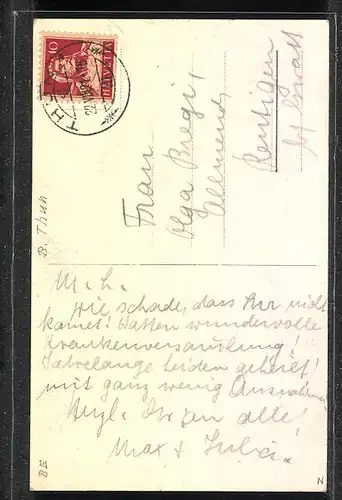 10
HELVETIA
THUN
Frau
Olga Bregi,
Allmend,
Reutigen
B. Thun
M. L.
Wie schade, dass Ihr nicht
kamet! Hatten wundervolle
Krankenversammlung!
Jahrelange Leiden geheilt!
mit ganz wenig Ausnahmen
Herzl. alle!
Max &
BE
N